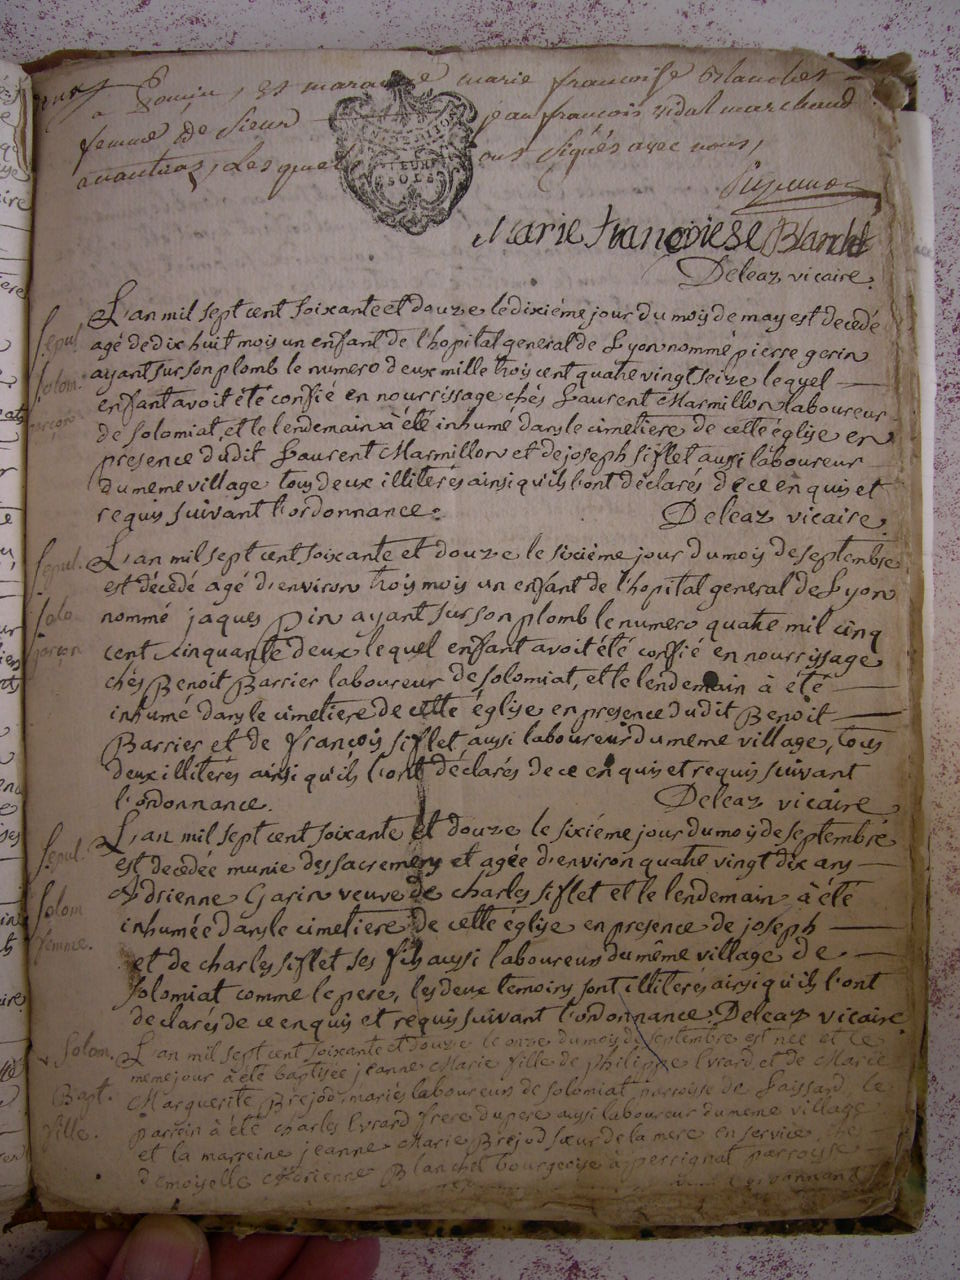 a et maraine marie francoise Blanchet
femme de Sieur jean françois vidal marchand
avanturas, Lesquels ont signés avec nous,
Marie francoiese Blanchet
Deleaz vicaire.
L'an mil sept cent soixante et douze le dixiéme jour du mois de may est decedé
agé de dix huit mois un enfant de l'hopital general de Lyon nommé pierre gerin
ayant sur son plomb le numero deux mille trois cent quatre vingt seize lequel
enfant avoit été confié en nourrissage chés Laurent Marmillon laboureur
de Solomiat, et le lendemain à été inhumé dans le cimetiere de cette église en
presence dudit Laurent Marmillon et de joseph siflet aussi laboureur
du meme village tous deux illiterés ainsi qu'ils l'ont déclarés de ce enquis et
requis suivant l'ordonnance. Deleaz vicaire.
Sepul.
Solom.
garçon
L'an mil sept cent soixante et douze le sixiéme jour du mois de septembre
est décedé agé d'environ trois mois un enfant de l'hopital general de Lyon
nommé jaques Pin ayant sur son plomb le numero quatre mil cinq
cent cinquante deux lequel enfant avoit été confié en nourrissage
chés Benoit Barrier laboureur de solomiat, et le lendemain à été
inhumé dans le cimetiere de cette église en presence dudit Benoit
Barrier et de françois siflet aussi laboureur du meme village, tous
deux illiterés ainsi qu'ils l'ont déclarés de ce enquis et requis suivant
l'ordonnance. Deleaz vicaire
Sepul.
Solo
garçon
L'an mil sept cent soixante et douze le sixiéme jour du mois de septembre
est decedée munie des sacremens et agée d'environ quatre vingt dix ans
Adrienne Garin veuve de charles siflet et le lendemain à été
inhumée dans le cimetiere de cette église en presence de joseph
et de charles siflet ses fils aussi laboureurs du même village de
solomiat comme le pere, les deux temoins sont illiterés ainsi qu'ils l'ont
declarés de ce enquis et requis suivant l'ordonnance. Deleaz vicaire
Sepul.
Solom
femme.
L'an mil sept cent soixante et douze le onze du mois de septembre est née et le
meme jour à été baptisée jeanne Marie fille de philippe Evrard et de Marie
Marguerite Brejod mariés laboureurs de solomiat parroisse de Laissard, le
parrein à été charles Evrard frere du pere aussi laboureur du meme village
et la marreine jeanne Marie Brejod sœur de la mere en service chés
demoiselle Adrienne Blanchet bourgeoise à perrignat parroisse
Solom.
Bapt.
fille.